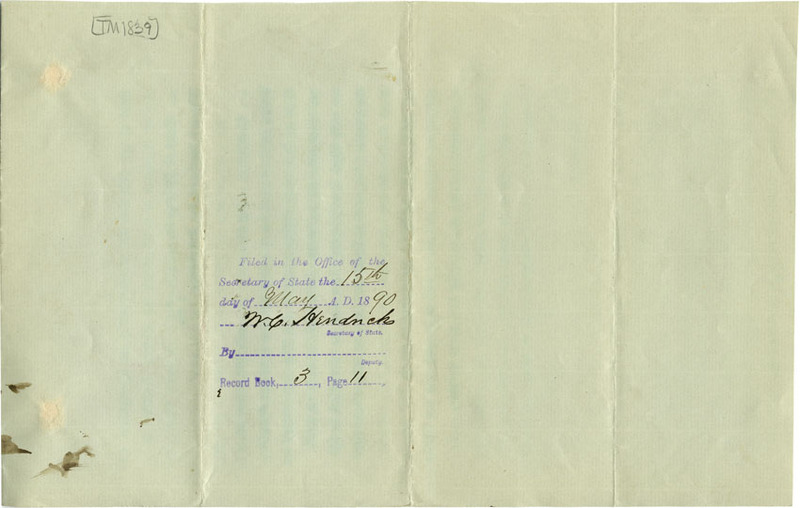 [TM1839]
Filed in the Office of the
Secretary of State the 15th
day of May A. D. 1890
W. C. Hendricks
Secretary of State.
By
Deputy.
Record Book, 3, Page 11,